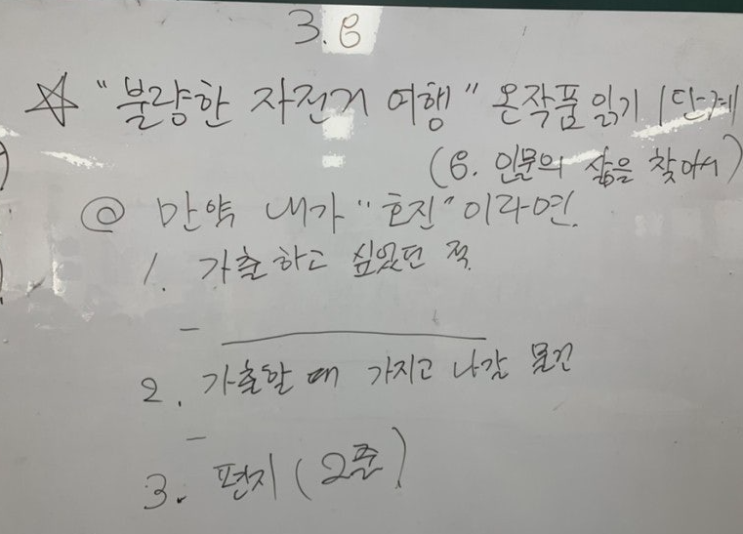 3.6
☆ "불량한 자전거 여행" 온작품읽기 1단계
(6. 인물의 삶을 찾아서)
@ 만약 내가 "호진"이라면.
1. 가출하고 싶었던 적
-
2. 가출할 때 가지고 나갈 물건
-
3. 편지 (2줄)